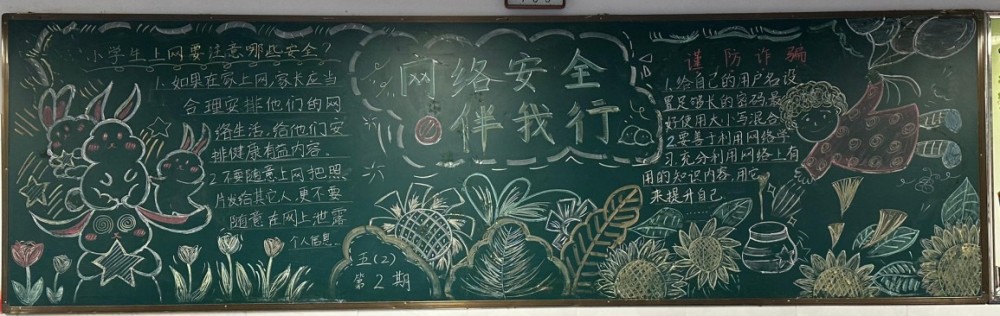 小学生上网要注意哪些安全？
1.如果在家上网,家长应当
合理安排他们的网
络生活,给他们安
排健康有益内容、
2.不要随意上网把照
片发给其它人,更不要
随意在网上泄露
个人信息.
网络安全
伴我行
五(2)
第2期
谨防诈骗
1.给自己的用户名设
置足够长的密码,最
好使用大小写混合
2.要善于利用网络学
习,充分利用网络上有
用的知识内容,用它
来提升自己
……